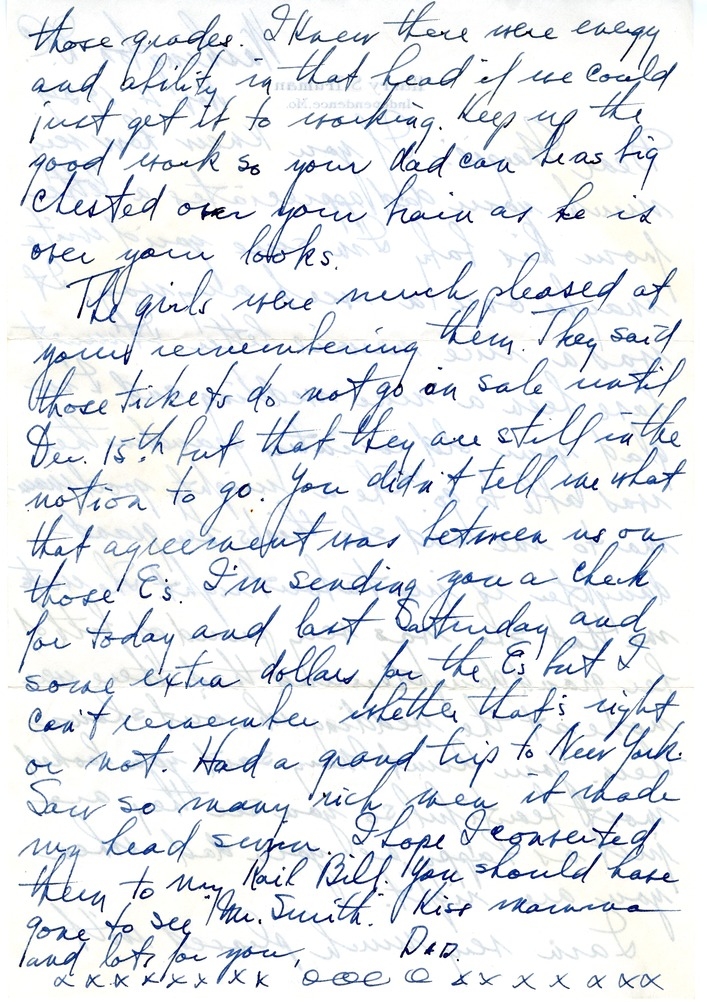 those grades. I knew there were energy
and ability in that head if we could
just get it to working. Keep up the
good work so your dad can be as big
chested over your brain as he is
over your looks.
The girls were much pleased at
your remembering them. They said
those tickets do not go on sale until
Dec. 15th but that they are still in the
notion to go. You didn't tell me what
that agreement was between us on
those E's. I'm sending you a check
for today and last Saturday and
some extra dollars for the E's but I
can't remember whether that's right
or not. Had a grand trip to New York.
Saw so many rich men it made
my head swim. I hope I converted
them to my Rail Bill. You should have
gone to see "Mr. Smith." Kiss mamma
and lots for you,
Dad.
x x x x x x x x x o o o o o x x x x x x x x